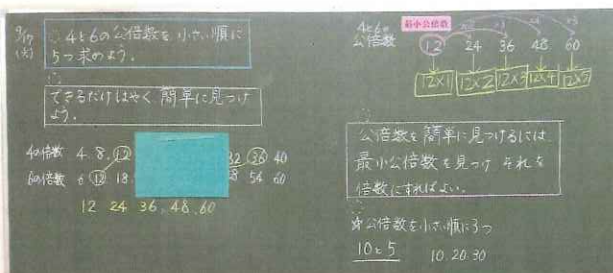 9/17
(火)
4と6の公倍数を小さい順に
5つ求めよう。
できるだけはやく簡単に見つけ
よう。
4の倍数 4.8.⑫ 32 ㊱ 40
6の倍数 6 ⑫ 18 54 60
12 24 36.48.60
最小公倍数
4と6の
公倍数 12 24 36 48 60
×2 ×3 ×4 ×5
12×1 12×2 12×3 12×4 12×5
公倍数を簡単に見つけるには
最小公倍数を見つけ それを
倍数にすればよい。
☆公倍数を小さい順に3つ
10と5 10.20.30